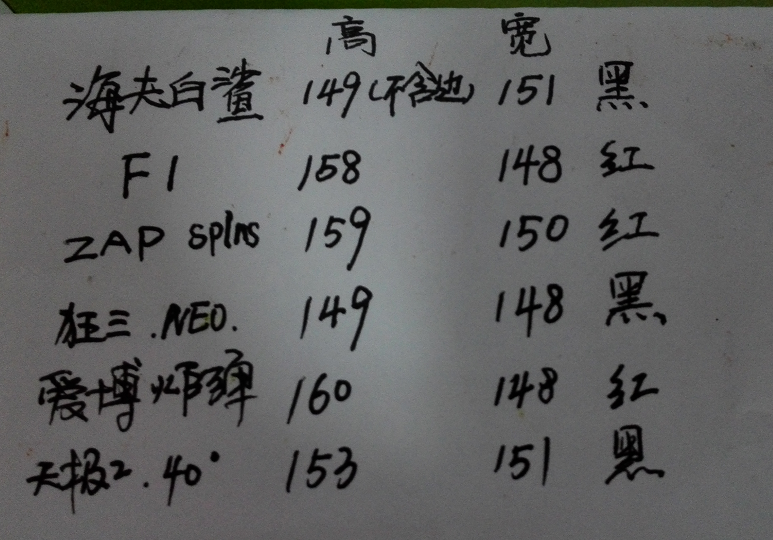 高 宽
海夫白鲨 149(不含边) 151 黑
F1 158 148 红
ZAP spins 159 150 红
狂三.NEO. 149 148 黑
爱博 弹 160 148 红
天极2.40° 153 151 黑